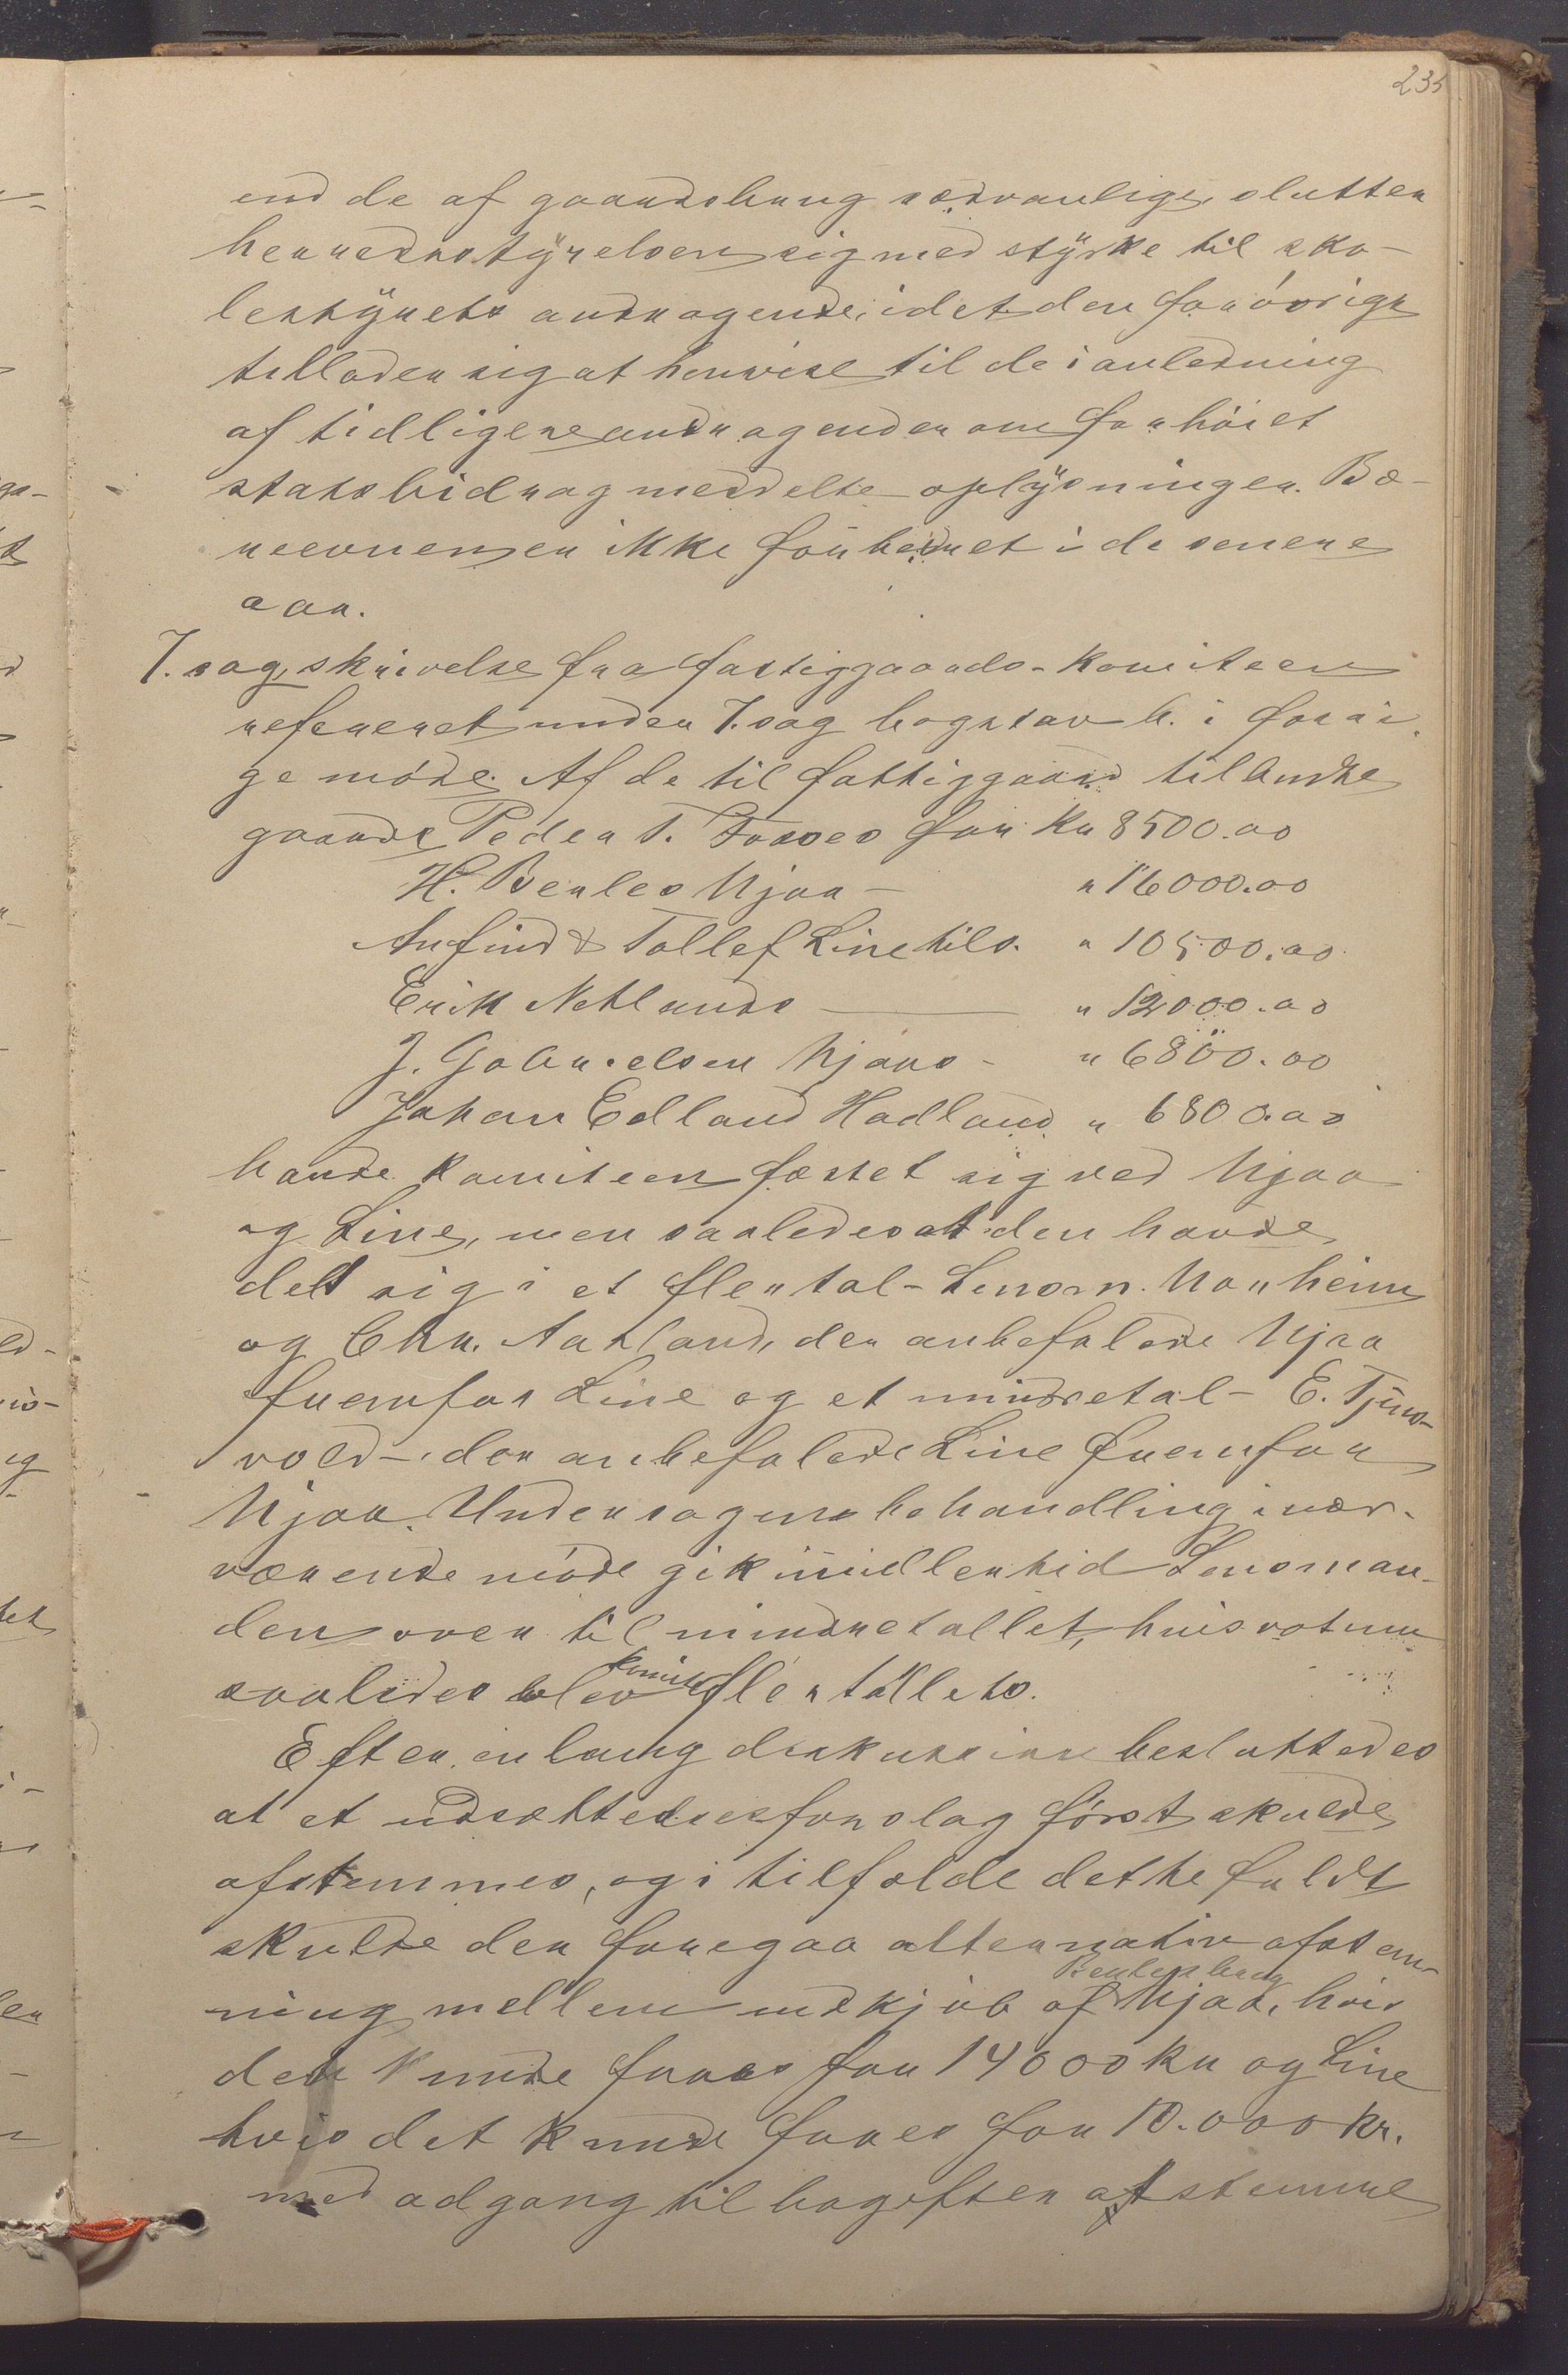 235
end de af gaardsbrug sædvanlige, slutter
herredsstyrelsen sig med styrke til sko-
lestyrets andragende, idet den forøvrigt
tillader sig at henvise til de i anledning
af tidligere andragender om forhøiet
statsbidrag meddelte oplysninger. Bæ-
reevnen er ikke forbedret i de senere
aar.
7. sag, skrivelse fra fattiggaards-komiteen
refereret under 7. sag bogstav b. i forri-
ge møde. Af de til fattiggaard tilbudte
gaarde Peder T. Fosses for Kr 8500.00
H. Berles Njaa - " 16000.00
Anfind & Tollef Line tils. " 10500.00
Erik Netlands - " 12000.00
J. Gabrielsen Njaas - " 6800.00
Johan Edland Hadland " 6800.00
havde komiteen fæstet sig ved Njaa
og Line, men saaledes at den havde
delt sig i et flertal - Lensm. Norheim
og Chr. Aarland, der anbefalede Njaa
fremfor Line og et mindretal - E. Tjens-
vold - der anbefalede Line fremfor
Njaa. Under sagens behandling i nær-
værende møde gik imidlertid Lensman-
den over til mindretallet, hvis votum
saaledes blev komite flertallets.
Efter en lang diskussion besluttedes
at et udsættelsesforslag først skulde
afstemmes, og i tilfælde dette faldt
skulde der foregaa alternativ afstem-
ning mellem indkjøb af Berlesbrug Njaa, hvis
det kunde faaes for 14000 kr og Line
hvis det kunde faaes for 10.000 kr.
med adgang til bagefter at stemme